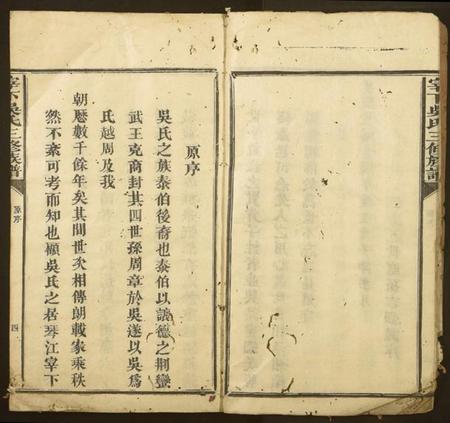 宰下吳氏三修族譜
原序
吳氏之族泰伯後裔也泰伯以讓德之荆蠻
武王克商封其四世孫周章於吳遂以吳爲
氏越周及我
朝曆數千餘年矣其間世次相傳朗載家乘秩
然不紊可考而知也顧吳氏之居琴江宰下
宰下吳氏三修族譜
原序
四